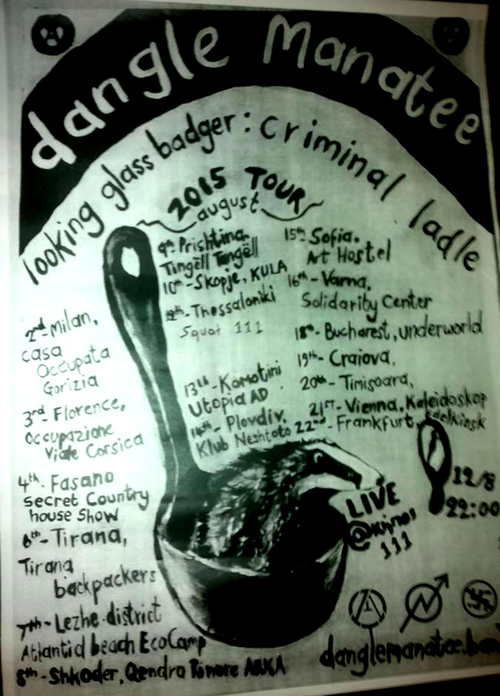 dangle Manatee
looking glass badger: criminal ladle
2015 TOUR
august
2nd - Milan,
casa
Occupata
Gorizia
3rd - Florence,
Occupazione
Viale Corsica
4th - Fasano
Secret Country
house show
6th - Tirana,
Tirana
backpackers
7th - Lezhe district
Atlantid beach EcoCamp
8th - Shkoder, Qendra Rinore ARKA
9th - Prishtina,
Tingëll Tangëll
10th - Skopje, KULA
12th - Thessaloniki
Squat 111
13th - Komotini
Utopia AD
14th - Plovdiv,
Klub Neshtoto
15th - Sofia,
Art Hostel
16th - Varna,
Solidarity Center
18th - Bucharest, underworld
19th - Craiova,
20th - Timisoara,
21st - Vienna, Kaleidoskop
22nd - Frankfurt,
LIVE
111
12/8
22:00
danglemanatee.ban